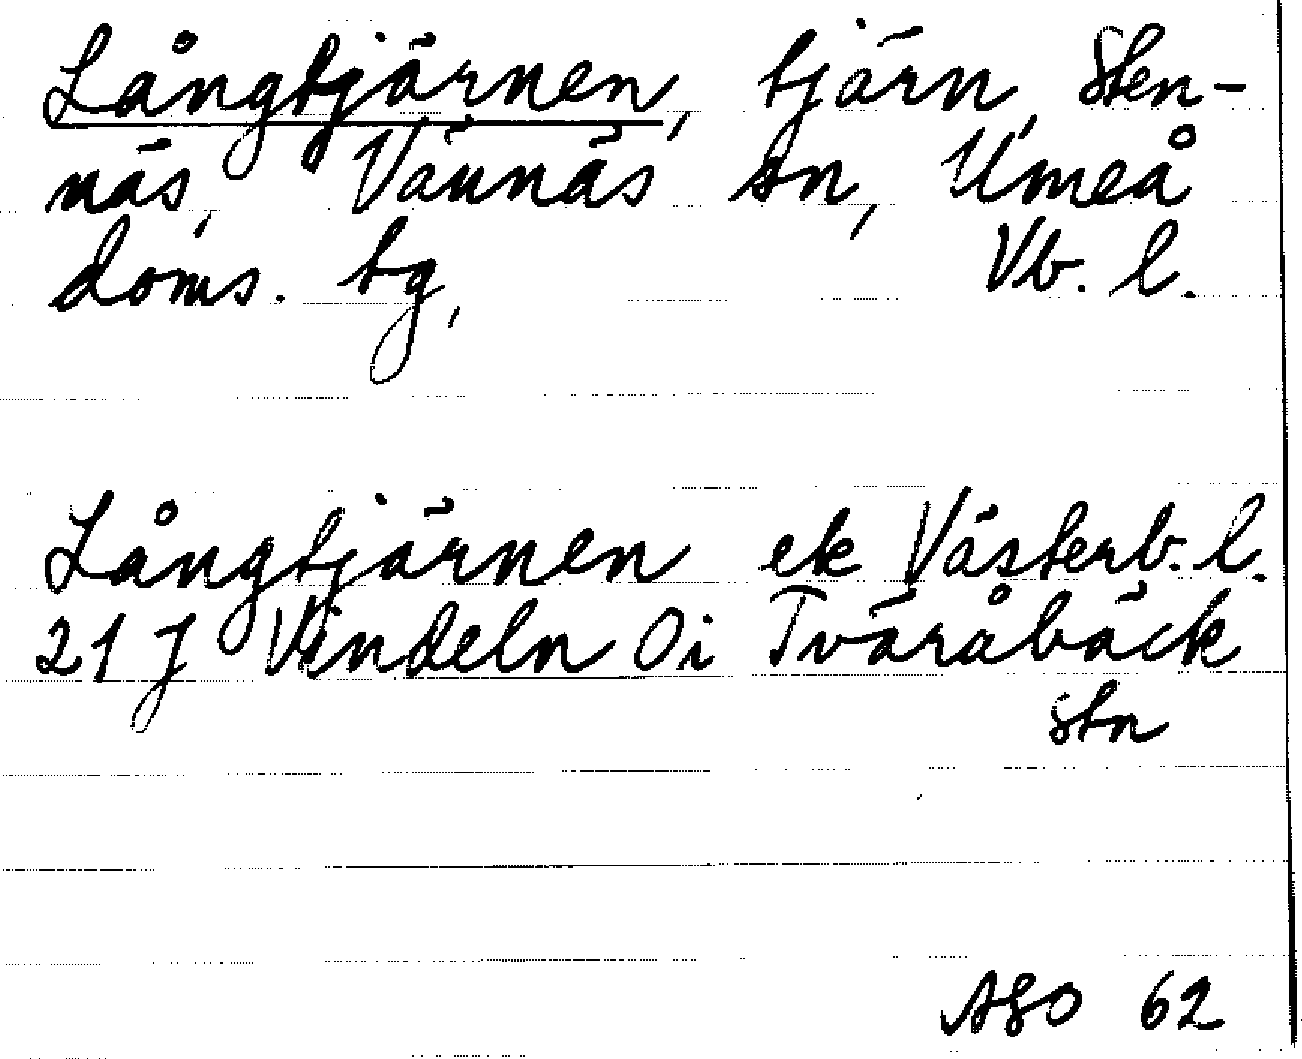 Långtjärnen, tjärn, Sten-
näs, Vännäs sn, Umeå
doms. tg, Vb. l.
Långtjärnen ek Västerb. l.
21 J Vindeln Oi Tväråbäck
stn
ASO 62